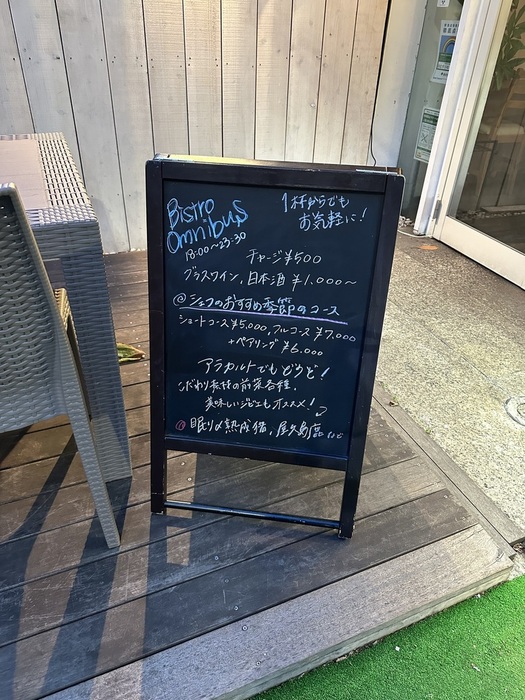 Bistro
Omnibus
18:00~23:30
1杯からでも
お気軽に!
チャージ¥500
グラスワイン,日本酒 ¥1.000~
@シェフのおすすめ季節のコース
ショートコース¥5,000,フルコース ¥7.000
+ペアリング¥6.000
アラカルトでもどうぞ!
こだわり素材の前菜各種,
美味しいジビエもオススメ!
@ 眠り〆熟成猪,屋久島鹿 など